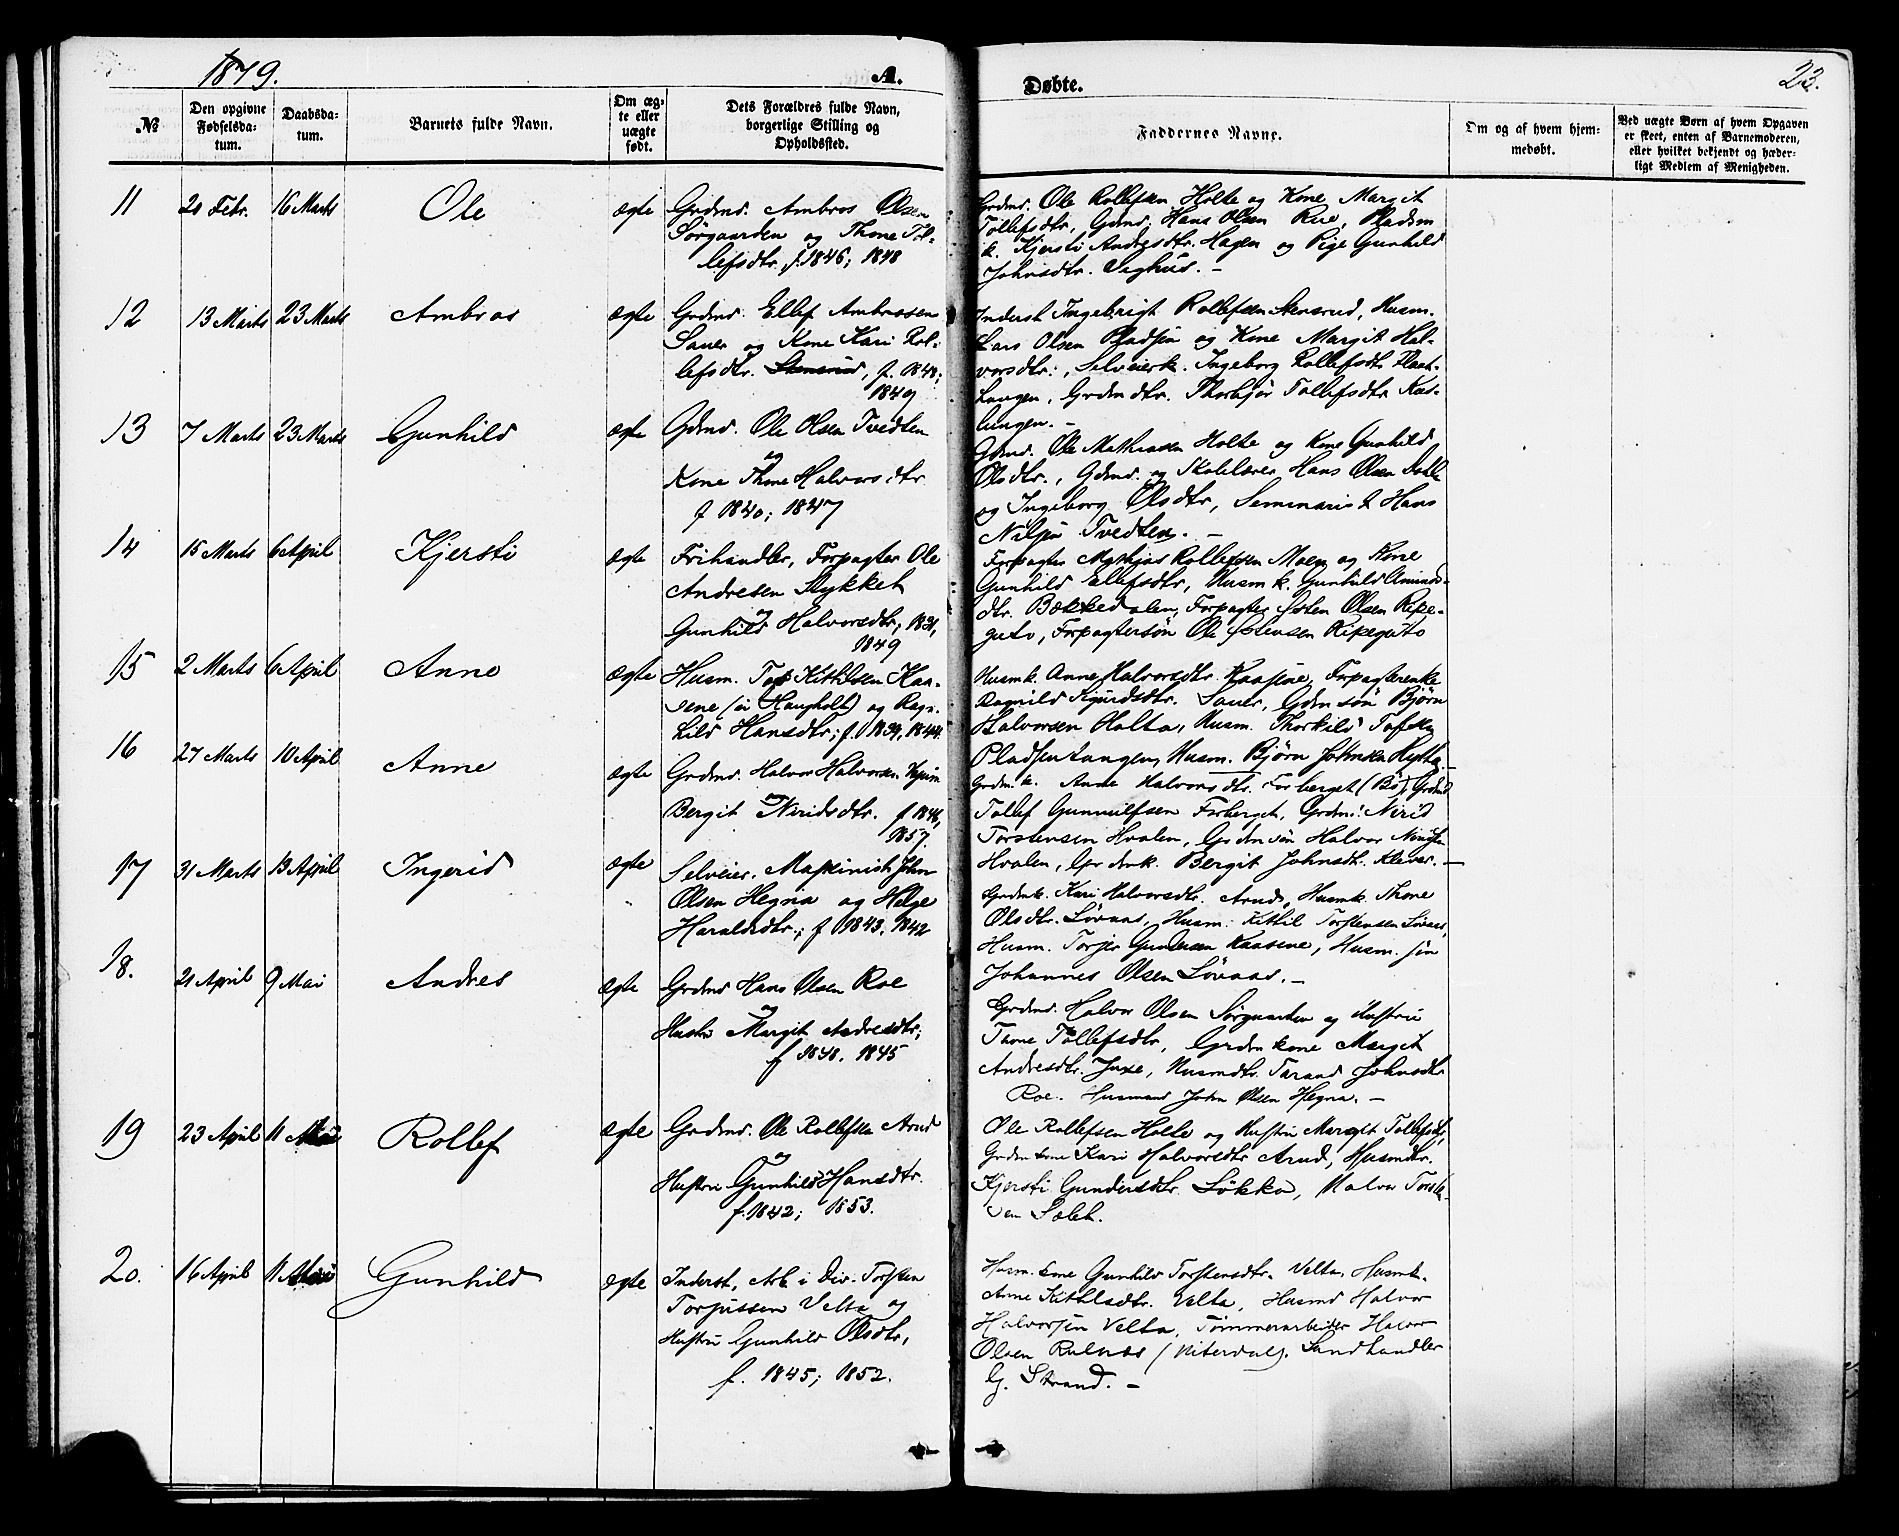 1879.
A.
Døbte.
23.
№
Den opgivne Fødselsda-tum.
Daabsda-tum.
Barnets fulde Navn.
Om æg-te eller uægte født.
Dets Forældres fulde Navn, borgerlige Stilling og Opholdssted.
Faddernes Navne.
Om og af hvem hjem-medøbt.
Ved uægte Børn af hvem Opgaven er skeet, enten af Barnemoderen, eller hvilket bekjendt og hæder-ligt Medlem af Menigheden.
11
Febr. 16 Marts
Ole
ægte
Grdmd. Ambros Olsen
Sørgaarden og Thone Tol-
lefsdtr. f. 1846; 1848
Grdmd. Ole Rollefsen Holte og Kone Margit
Tollefsdtr, Gdmd. Hans Olsen Rue, Pladsm
k. Kjersti Andresdtr. Hagen og Pige Gunhild
Johnsdtr. Seghus. –
12
13 Marts 23 Marts
Ambros
ægte
Grdmd. Ellef Ambrossen
Sauer og Kone Kari Rol-
lefsdtr. Stensrud, f. 1848;
1849
Inderst Ingebrigt Rollefsen Stensrud, Husm.
Lars Olsen Pladsen og Kone Margit Hal-
vorsdtr., Selveierk. Ingeborg Rollefsdtr.
Grdmdtr. Thorbjør Tollefsdtr.
lungen. –
13
7 Marts 23 Marts
Gunhild
ægte
Gdmd. Ole Olsen Tvedten
og
Kone Thone Halvorsdtr.
f 1840; 1847
Gdmd. Ole Mathiasen Holte og Kone Gunhild
Olsdtr., Gdmd. og Skolelærer Hans Olsen
og Ingeborg Olsdtr, Seminarist Hans
Nilsen Tvedten. –
14
15 Marts 6 April
Kjersti
ægte
Frihandler, Forpagter Ole
Andresen Stykket
og
Gunhild Halvorsdtr, 1831,
1849
Forpagter Mathias Rollefsen Moen og Kone
Gunhild Ellefsdtr, Husmk. Gunhild Amunds-
dtr. Bækkedalen, Forpagter Sten Olsen Ripe-
guto, Forpagtersøn Ole Stensen Ripeguto
15
2 Marts 6 April
Anne
ægte
Husm. Kithilsen Kaa-
sene (ei Haugholt) og Ragn-
hild Hansdtr; f. 1839, 1844.
Husmk. Anne Halvorsdtr. Kaasene, Forpagterenke
Ragnild Sigurdsdtr. Sauer, Gdmsøn Bjørn
Halvorsen Holta, Husm. Thorkild
Pladsentangen, Husm. Bjørn Johnsen
16
27 Marts 10 April
Anne
ægte
Grdmd. Halvor Halvorsen
og
Bergit Niridsdtr. f 1846,
1857.
Grdm.k. Anne Halvorsdtr. Forberget (Bø), Grdmd
Tollef Gunnulfsen Forberget, Grdmd. Nirid
Torstensen Hvalen, Grdmsøn Halvor
Hvalen, Grdmk. Bergit Johnsdtr. Klevar. –
17
31 Marts 13 April
Ingerid
ægte
Selveier. Maskinist John
Olsen Hegna og Helge
Haraldsdtr.; f 1843, 1842
Grdmk. Kari Halvorsdtr. Arnd, Husmk. Thone
Olsdtr. Løvaas, Husm. Kittil Torstensen Løvaas,
Husm. Torjer Gundersen Kaasene, Husm. søn
Johannes Olsen Løvaas. –
18.
21 April 9 Mai
Andres
ægte
Grdmd Hans Olsen Roe
og
Hustru Margit Andresdtr;
f 1848. 1845
Grdmd. Halvor Olsen Sørgaarden og Hustru
Thone Tollefsdtr, Grdmkone Margit
Andresdtr. Juve, Husmdtr. Tarand Johnsdtr
Roe. Husmand John Olsen Hegna. –
19
23 April 11 Mai
Rollef
ægte
Grdmd. Ole Rollefsen Arnd
og
Hustru Gunhild Hansdtr.
f. 1842; 1853.
Ole Rollefsen Holte og Hustru Margit Tollefsdtr,
Grdmkone Kari Halvorsdtr Arnd, Husmdtr.
Kjersti Gundersdtr. Løkka, Halvor Torste-
sen
20.
16 April 11 Mai
Gunhild
ægte
Inderst, Arb. i Div. Torsten
Torjussen Velta og
Hustru Gunhild Olsdtr,
f. 1845; 1852.
Husm. kone Gunhild Torstensdtr. Velta, Husmk.
Anne Kittilsdtr. Velta, Husmd Halvor
Halvorsen Velta, Tømmerarbeider Halvor
Olsen Rulnæs (Hiterdal). Landhandler
G. Strand. –